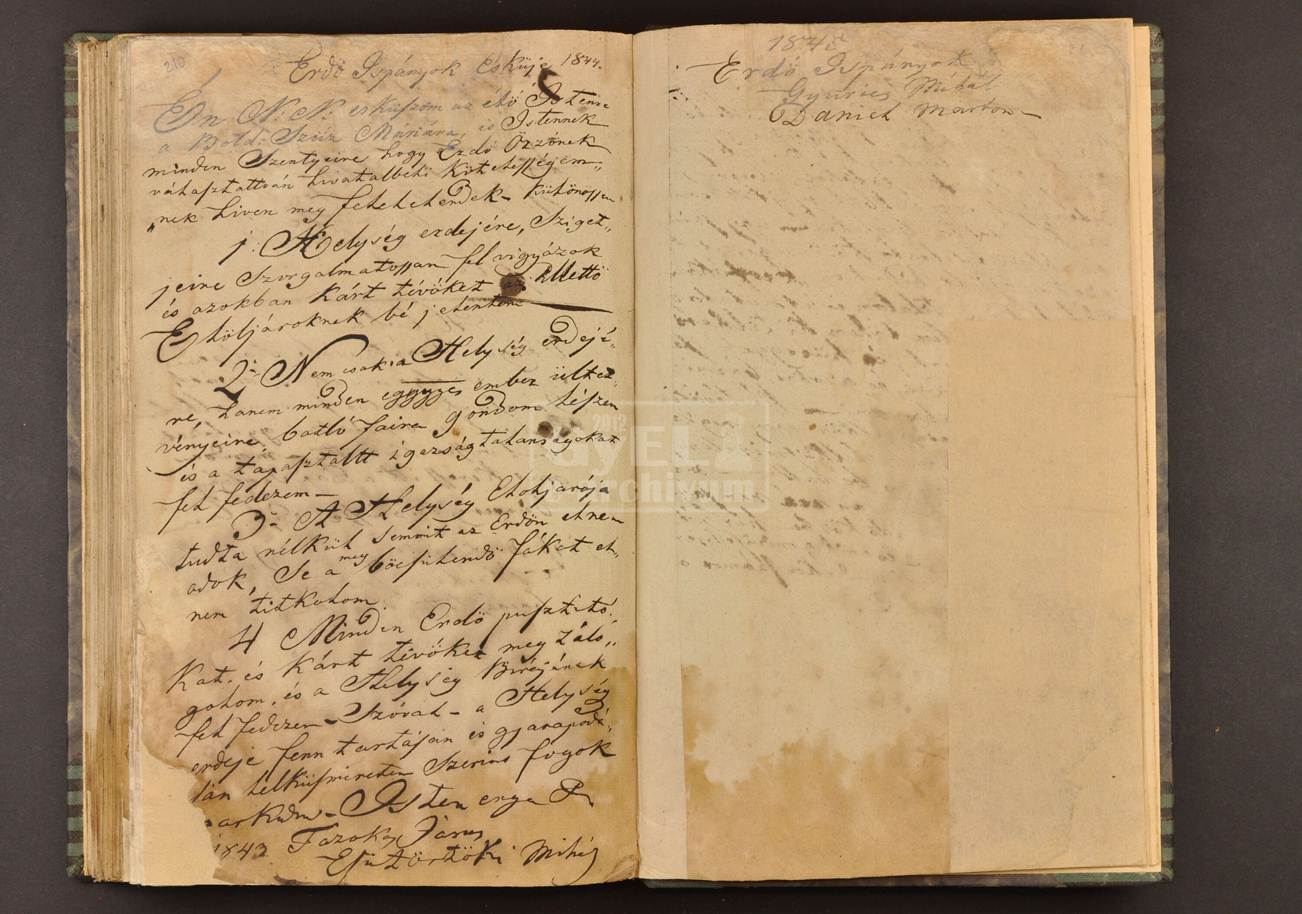 210
Erdő Ispányok Esküje 1844.
Én N: N: esküszöm az élő Istenre
a Bold: Szűz Máriára, és Istennek
minden Szentyeire hogy Erdő Őrzőnek
választattván hivatalbéli Kötelességem„
„nek híven meg felelelendek – Különössen
1. A Helység erdejére, Sziget„
jeire Szorgalmatossan fel vigyázok
és azokban Kárt tévőket az Illető
Elöljároknak bé jelentem
2. Nem csak a Helység erdejé„
re, hanem minden eggyes ember ültet„
vényeire, faira gondom lészen
és a tapasztaltt igazságtalanságokat
fel fedezem –
3. A Helység Elöljarója
tudta nélkül semmit az Erdőn el nem
adok, Se a meg böcsülendő fákat el„
nem titkolom
4 Minden Erdő pusztitó„
Kat, és Kárt tévőket meg Záló„
golom, és a Helység Birájának
fel fedezem – Szóval – a Helység
erdeje fenn tartásán és gyarapodá„
sán lelkiismeretem Szerint fogok
Isten engem
1843 Fazokas János
Csütörtöki Mihály
1845
Erdő Ispányok
Gyurics Mihál
Daniel Marton –
gyEL
archivum